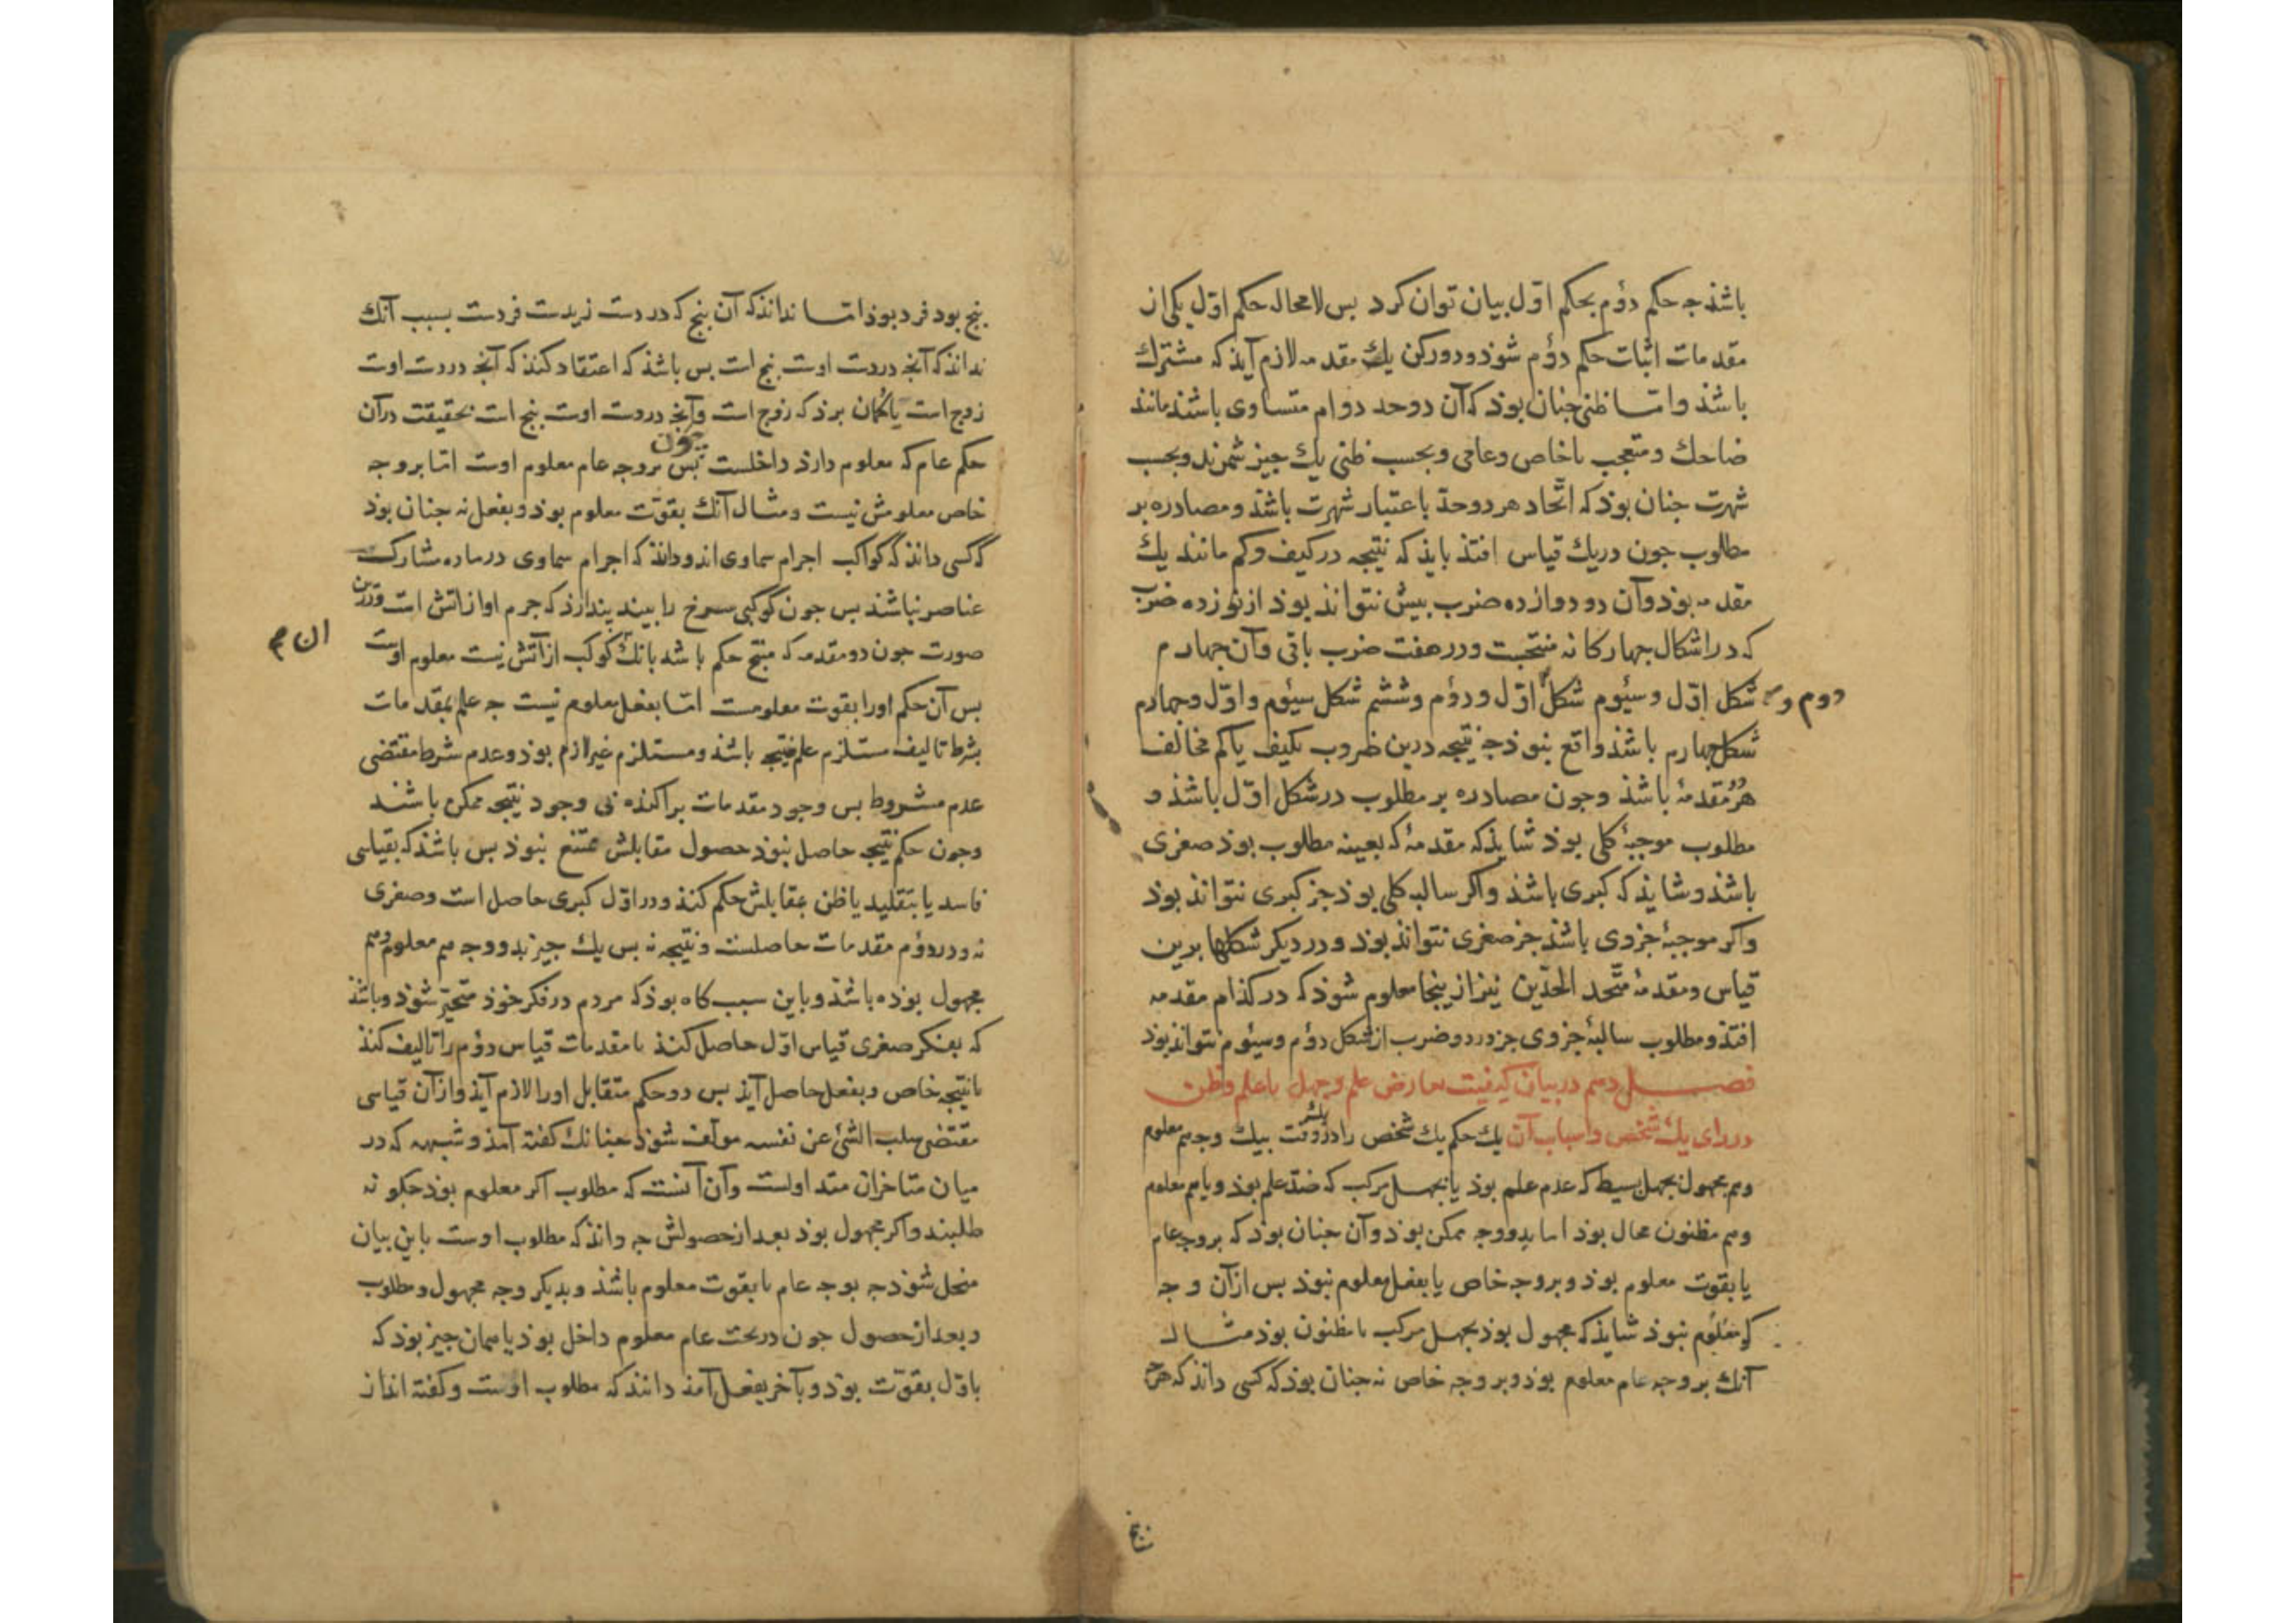 باشذ جه حکم دؤم بحکم اوّل بیان توان کرد بس لامحاله حکم اوّل یکی از
مقدمات اثبات حکم دؤم شوذ و دور کن یک مقدمه لازم آیذ که مشترک
باشذ و امّا ظنی جنان بوذ که آن دو حد دوام متساوی باشند مانند
ضاحک و متعجب یا خاص و عامی و بحسب ظنی یک جیز شمرند و بحسب
شهرت جنان بوذ که اتّحاد هر دو حدّ باعتبار شهرت باشذ و مصادره بر
مطلوب جون در یک قیاس افتذ بایذ که نتیجه در کیف و کم مانند یک
مقدمه بوذ و آن در دوازده ضرب بیش نتواند بوذ از نوزده ضرب
که در اشکال جهارکانه منتجست و در هفت ضرب باقی و آن جهارم
دوم و شکل اوّل و سئوم شکل اوّل و دؤم و ششم شکل سئوم و اوّل و جهارم
شکل جهارم باشذ واقع نبوذ جه نتیجه درین ضروب بکیف یا کم مخالف
هر دو مقدمهٔ باشذ و جون مصادره بر مطلوب در شکل اوّل باشذ و
مطلوب موجبهٔ کلی بوذ شایذ که مقدمهٔ که بعینه مطلوب بوذ صغری
باشذ و شایذ که کبری باشذ و اکر سالبه کلی بوذ جز کبری نتواند بوذ
و اکر موجبهٔ جزوی باشذ جز صغری نتواند بوذ و در دیکر شکلها برین
قیاس و مقدمهٔ متّحد الحدّین نیز از ینجا معلوم شوذ که در کذام مقدمه
افتذ و مطلوب سالبهٔ جزوی جز در دو ضرب از شکل دؤم و سئوم نتواند بوذ
فصل دهم در بیان کیفیت تعارض علم و جهل یا علم و ظن
در رای یک شخص و اسباب آن یک حکم یک شخص را در وقت بیک وجه هم معلوم
و هم مجهول بجهل بسیط که عدم علم بوذ یا بجهل مرکب که ضدّ علم بوذ و یا هم معلوم
و هم مظنون محال بوذ اما بدو وجه ممکن بوذ و آن جنان بوذ که بر وجه عام
یا بقوت معلوم بوذ و بر وجه خاص یا بفعل معلوم نبوذ بس از آن وجه
که معلوم نبوذ شایذ که مجهول بوذ بجهل مرکب یا مظنون بوذ مثال
آنک بر وجه عام معلوم بوذ و بر وجه خاص نه جنان بوذ که کسی داند که هر
بنج
بنج بود فرد بوذ امّا نداند که آن بنج که در دست زیدست فردست بسبب آنک
نداند که آنجه در دست اوست بنج است بس باشذ که اعتقاد کند که آنجه در دست اوست
زوج است یا کمان برد که زوج است و آنجه در دست اوست بنج است بحقیقت در آن
حکم عام که معلوم دارد داخلست بس جون بر وجه عام معلوم اوست امّا بر وجه
خاص معلومش نیست و مثال آنک بقوّت معلوم بوذ و بفعل نه جنان بوذ
که کسی داند که کواکب اجرام سماوی اند و داند که اجرام سماوی در ماده مشارک
عناصر نباشند بس جون کوکبی سرخ را بیند پندارد که جرم او از اتش است و درین
صورت جون دو مقدمه که منتج حکم باشد بانک کوکب از آتش نیست معلوم اوست
ان هم
بس آن حکم او را بقوت معلومست امّا بفعل معلوم نیست جه علم بمقدمات
بشرط تالیف مستلزم علم نتیجه باشذ و مستلزم غیر لازم بوذ و عدم شرط مقتضی
عدم مشروط بس وجود مقدمات براکنده بی وجود نتیجه ممکن باشند
و جون حکم نتیجه حاصل نبوذ حصول مقابلش ممتنع نبوذ بس باشذ که بقیاسی
فاسد یا بتقلید یا ظن بمقابلش حکم کنذ و در اوّل کبری حاصل است و صغری
نه و در دؤم مقدمات حاصلست و نتیجه نه بس یک جیز بدو وجه هم معلوم و هم
مجهول بوذه باشذ و باین سبب کاه بوذ که مردم در فکر خوذ متحیّر شوذ و باشذ
که بفکر صغری قیاس اوّل حاصل کنذ یا مقدمات قیاس دؤم را تالیف کنذ
تا نتیجه خاص و بفعل حاصل آیذ بس دو حکم متقابل او را لازم آیذ و از آن قیاسی
مقتضی سلب الشئ عن نفسه مولف شوذ جنانک کفته آمذ و شبهه که در
میان متاخران متداولست و آن آنست که مطلوب اکر معلوم بوذ جکونه
طلبند و اکر مجهول بوذ بعد از حصولش جه دانذ که مطلوب اوست باین بیان
منحل شوذ جه بوجه عام یا بقوّت معلوم باشذ و بدیکر وجه مجهول و مطلوب
و بعد از حصول جون در تحت عام معلوم داخل بوذ یا همان جیز بوذ که
باوّل بقوّت بوذ و بآخر بفعل آمذ دانند که مطلوب اوست و کفته اند از